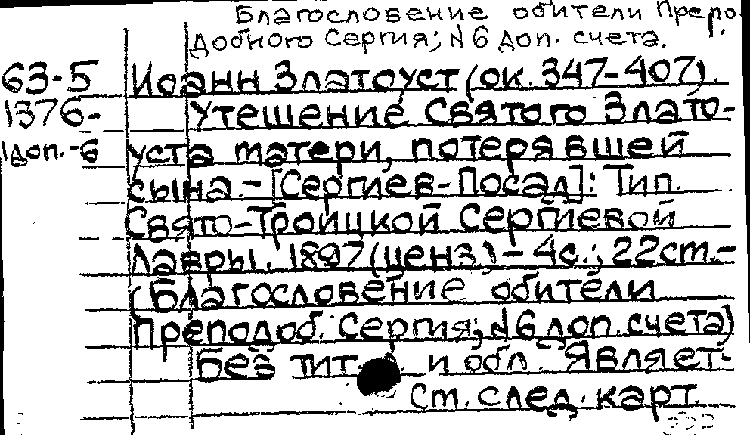 Благословение обители Препо-
добного Сергия; №6 доп. счета.
63-5 Иоанн Златоуст (ок. 347-407).
1376- Утешение Святого Злато-
1доп.-6 уста матери, потерявшей
сына. - [Сергиев-Посад]: Тип.
Свято-Троицкой Сергиевой
Лавры. 1897 (ценз.) - 4с.; 22см.-
(Благословение обители
Преподоб. Сергия; №6 доп. счета)
Без тит. и обл. Являет-
См. след. карт.